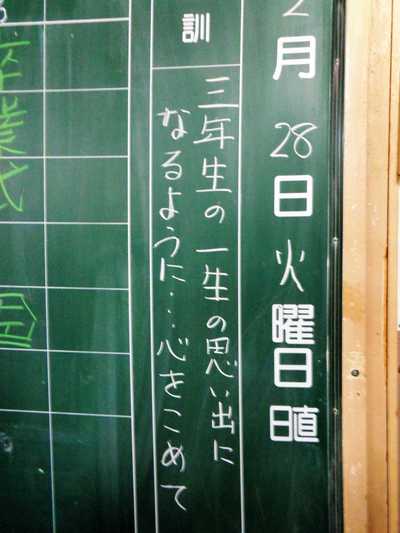 2月28日火曜日 日直
訓
三年生の一生の思い出に
なるように…心をこめて
卒業式